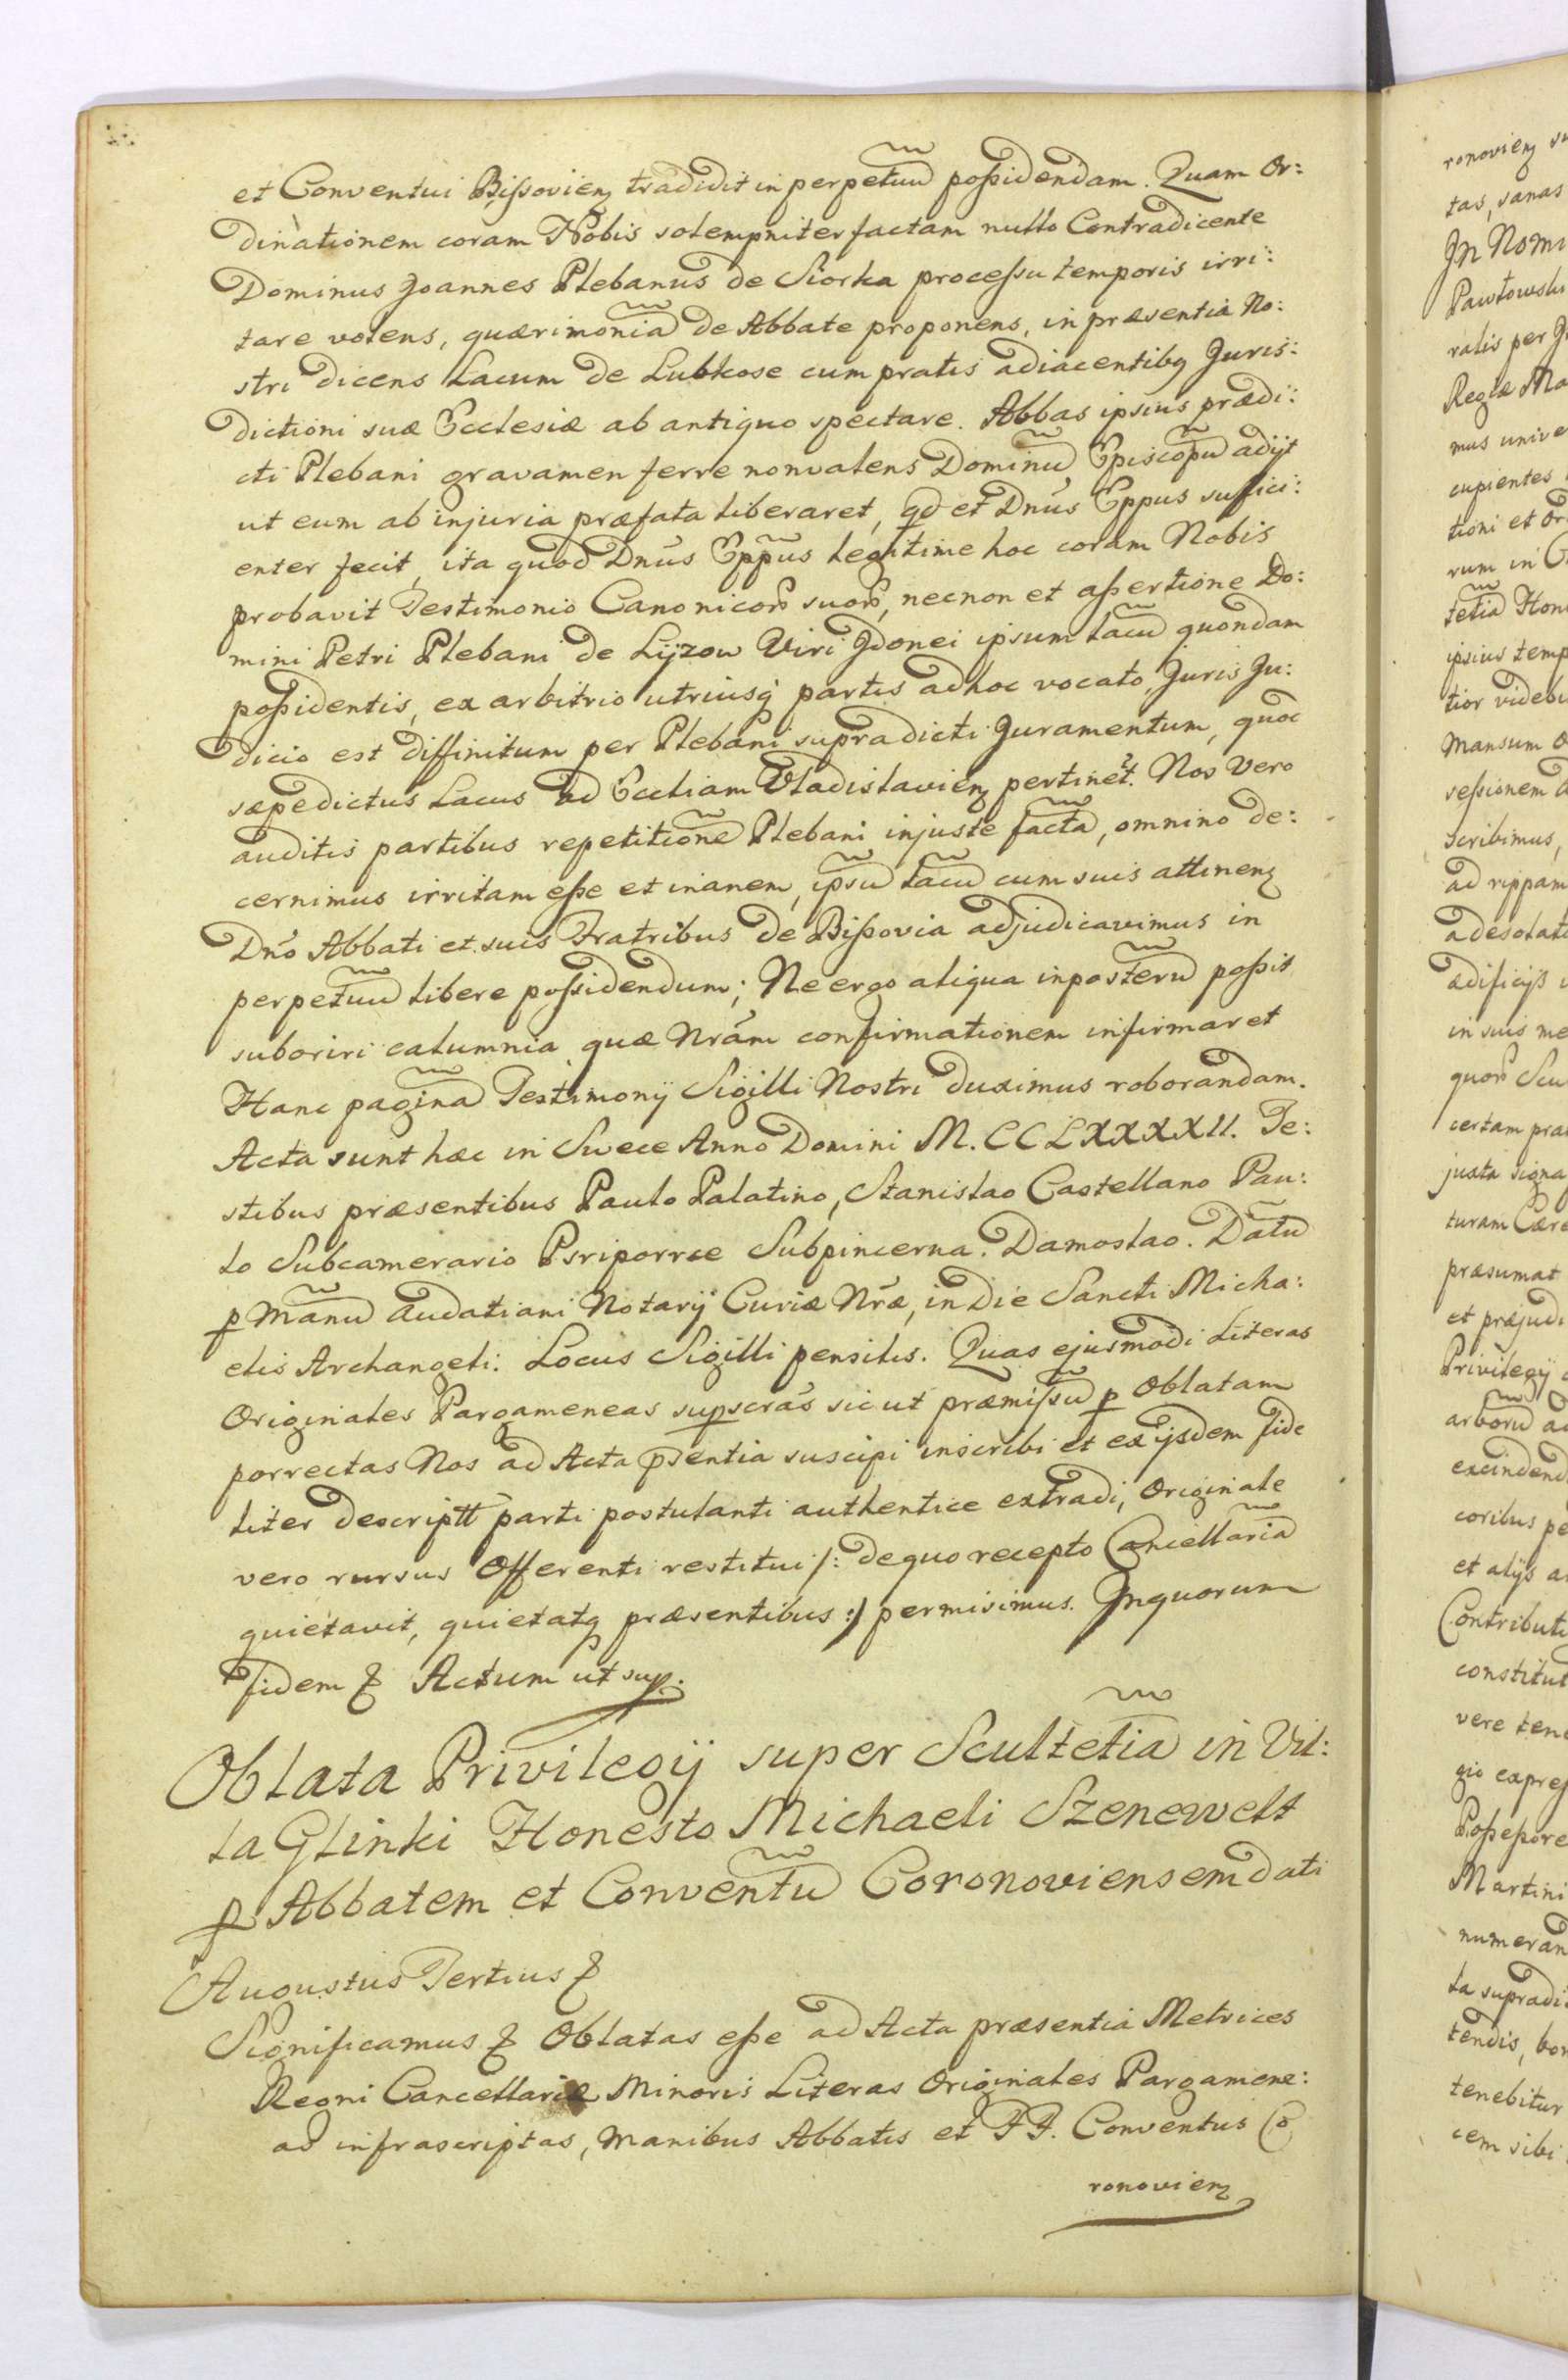 et Conventui Bissovien̄ tradidit in perpetuū possidendam. Quam Or:
dinationem coram Nobis solempniter factam nullo Contradicente
Dominus Joannes Plebanus de Siorka processu temporis irri:
tare volens, quærimoniā de Abbate proponens, in præsentia No:
stri dicens Lacum de Lubkose cum pratis adiacentibꝫ Juris:
dictioni suæ Ecclesiæ ab antiquo spectare. Abbas ipsius prædi:
cti Plebani gravamen ferre non valens Dominū Episcopū adijt
ut eum ab injuria præfata liberaret, qd et Dnus Eppus suffici:
enter fecit, ita quod Dnus Eppus legitime hoc coram Nobis
probavit Testimonio Canonicoꝝ suoꝝ, necnon et assertione Do:
mini Petri Plebani de Lijzow Viri Jdonei ipsum lacū quondam
possidentis, ex arbitrio utriusq partis ad hoc vocato, Juris Ju:
dicio est diffinitum per Plebani supradicti Juramentum, quod
sæpedictus Lacus ad Eccliam Vladislavien̄ pertinet. Nos Vero
auditis partibus repetitionē Plebani injuste factā, omnino de:
cernimus irritam esse et inanem, ipsū lacū cum suis attinen̄
Dno Abbati et suis Fratribus de Bissovia adjudicavimus in
perpetuū libere possidendum; Ne ergo aliqua inposterū possit
suboriri calumnia quæ Nram confirmationem infirmaret
Hanc paginā Testimonij Sigilli Nostri duximus roborandam.
Acta sunt hæc in Swece Anno Domini M.CCLXXXXII. Te:
stibus præsentibus Paulo Palatino, Stanislao Castellano Pau:
lo Subcamerario Psriporrce Subpincerna. Damoslao. Datū
ꝑ Manū Audatiani Notarij Curiæ Nræ, in Die Sancti Micha:
elis Archangeli. Locus Sigilli pensilis. Quas ejusmodi Literas
Originales Pargameneas supscras sicut præmissū ꝑ Oblatam
porrectas Nos ad Acta pn̄sentia suscipi inscribi et ex ijsdem fide
liter descriptt parti postulanti authentice extradi, Originale
vero rursus Offerenti restitui /: de quo recepto Cancellariā
quietavit, quietatꝗ præsentibus :/ permisimus. Jn quorum
fidem & Actum ut sup.
Oblata Privilegij super Scultetiā in Vil:
la Glinki Honesto Michaeli Szenewelt
ꝑ Abbatem et Conventū Coronoviensem dati
Augustus Tertius &
Significamus & Oblatas esse ad Acta præsentia Metrices
Regni Cancellariæ Minoris Literas Originales Pargamene:
as infrascriptas, manibus Abbatis et FF. Conventus Co
ronovien̄
ronovien̄
tas, sanas
Jn Nomi
Pawłowski
ralis per
Regiæ Ma
mus unive
cupientes
tioni et Or
rum in
tetiā Hon
ipsius temp
tior videbi
Mansum
sessionem
scribimus,
ad rippam
adesolat
ædificijs
in suis me
quoꝝ Scu
certam pra
juxta signa
turam
præsumat
et præjudi
Privilegij
arborū ac
excindend
coribus pe
et alijs a
Contributi
constitut
vere tene
gio expres
Possessore
Martini
numeran
ta supradi
tendis, bon
tenebitur
cem sibi